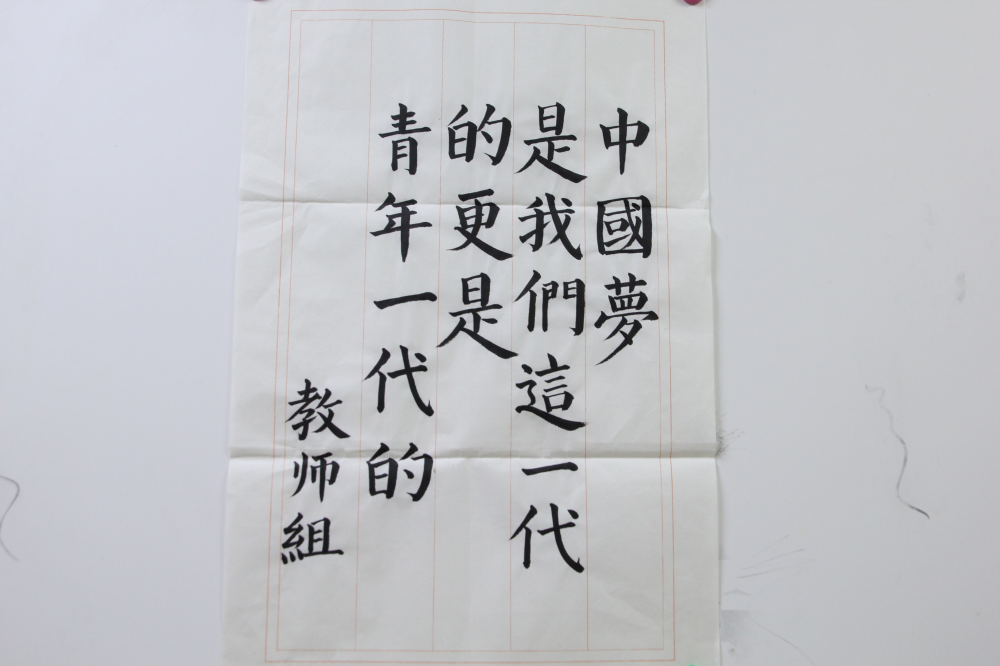 中國夢
是我們這一代
的更是
青年一代的
教师組